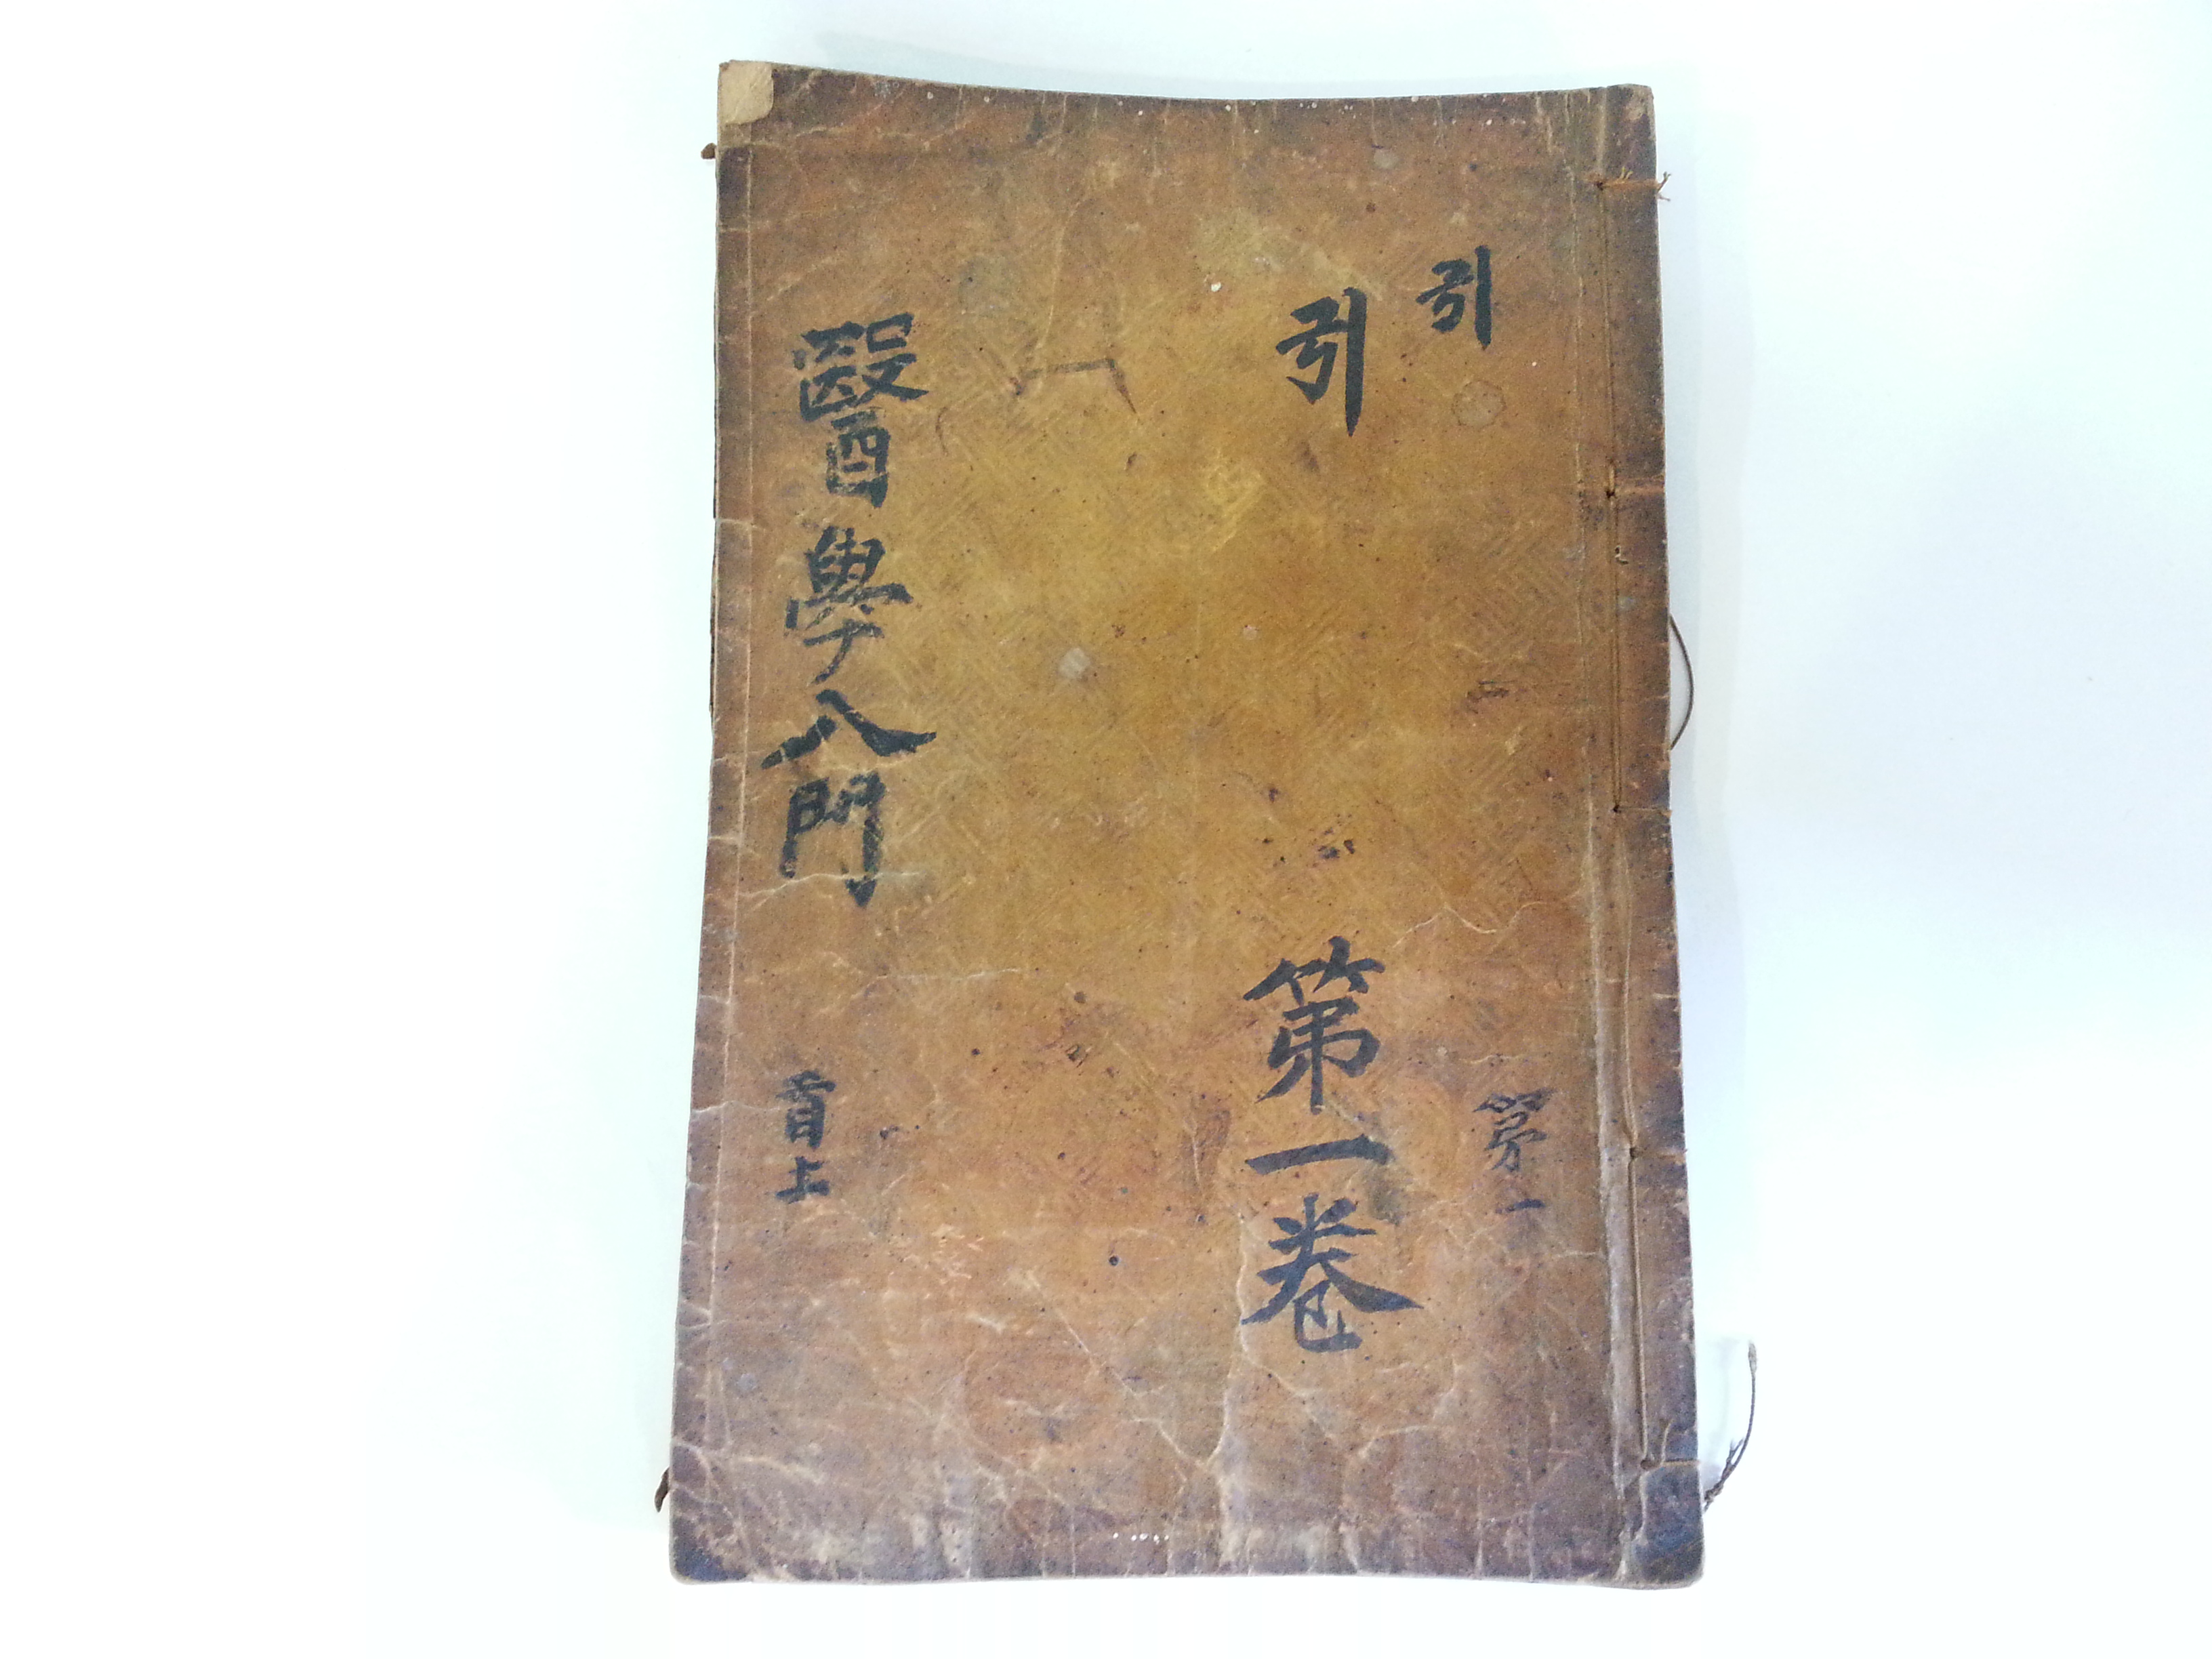 引
第一
引
第一卷
醫學入門
首上